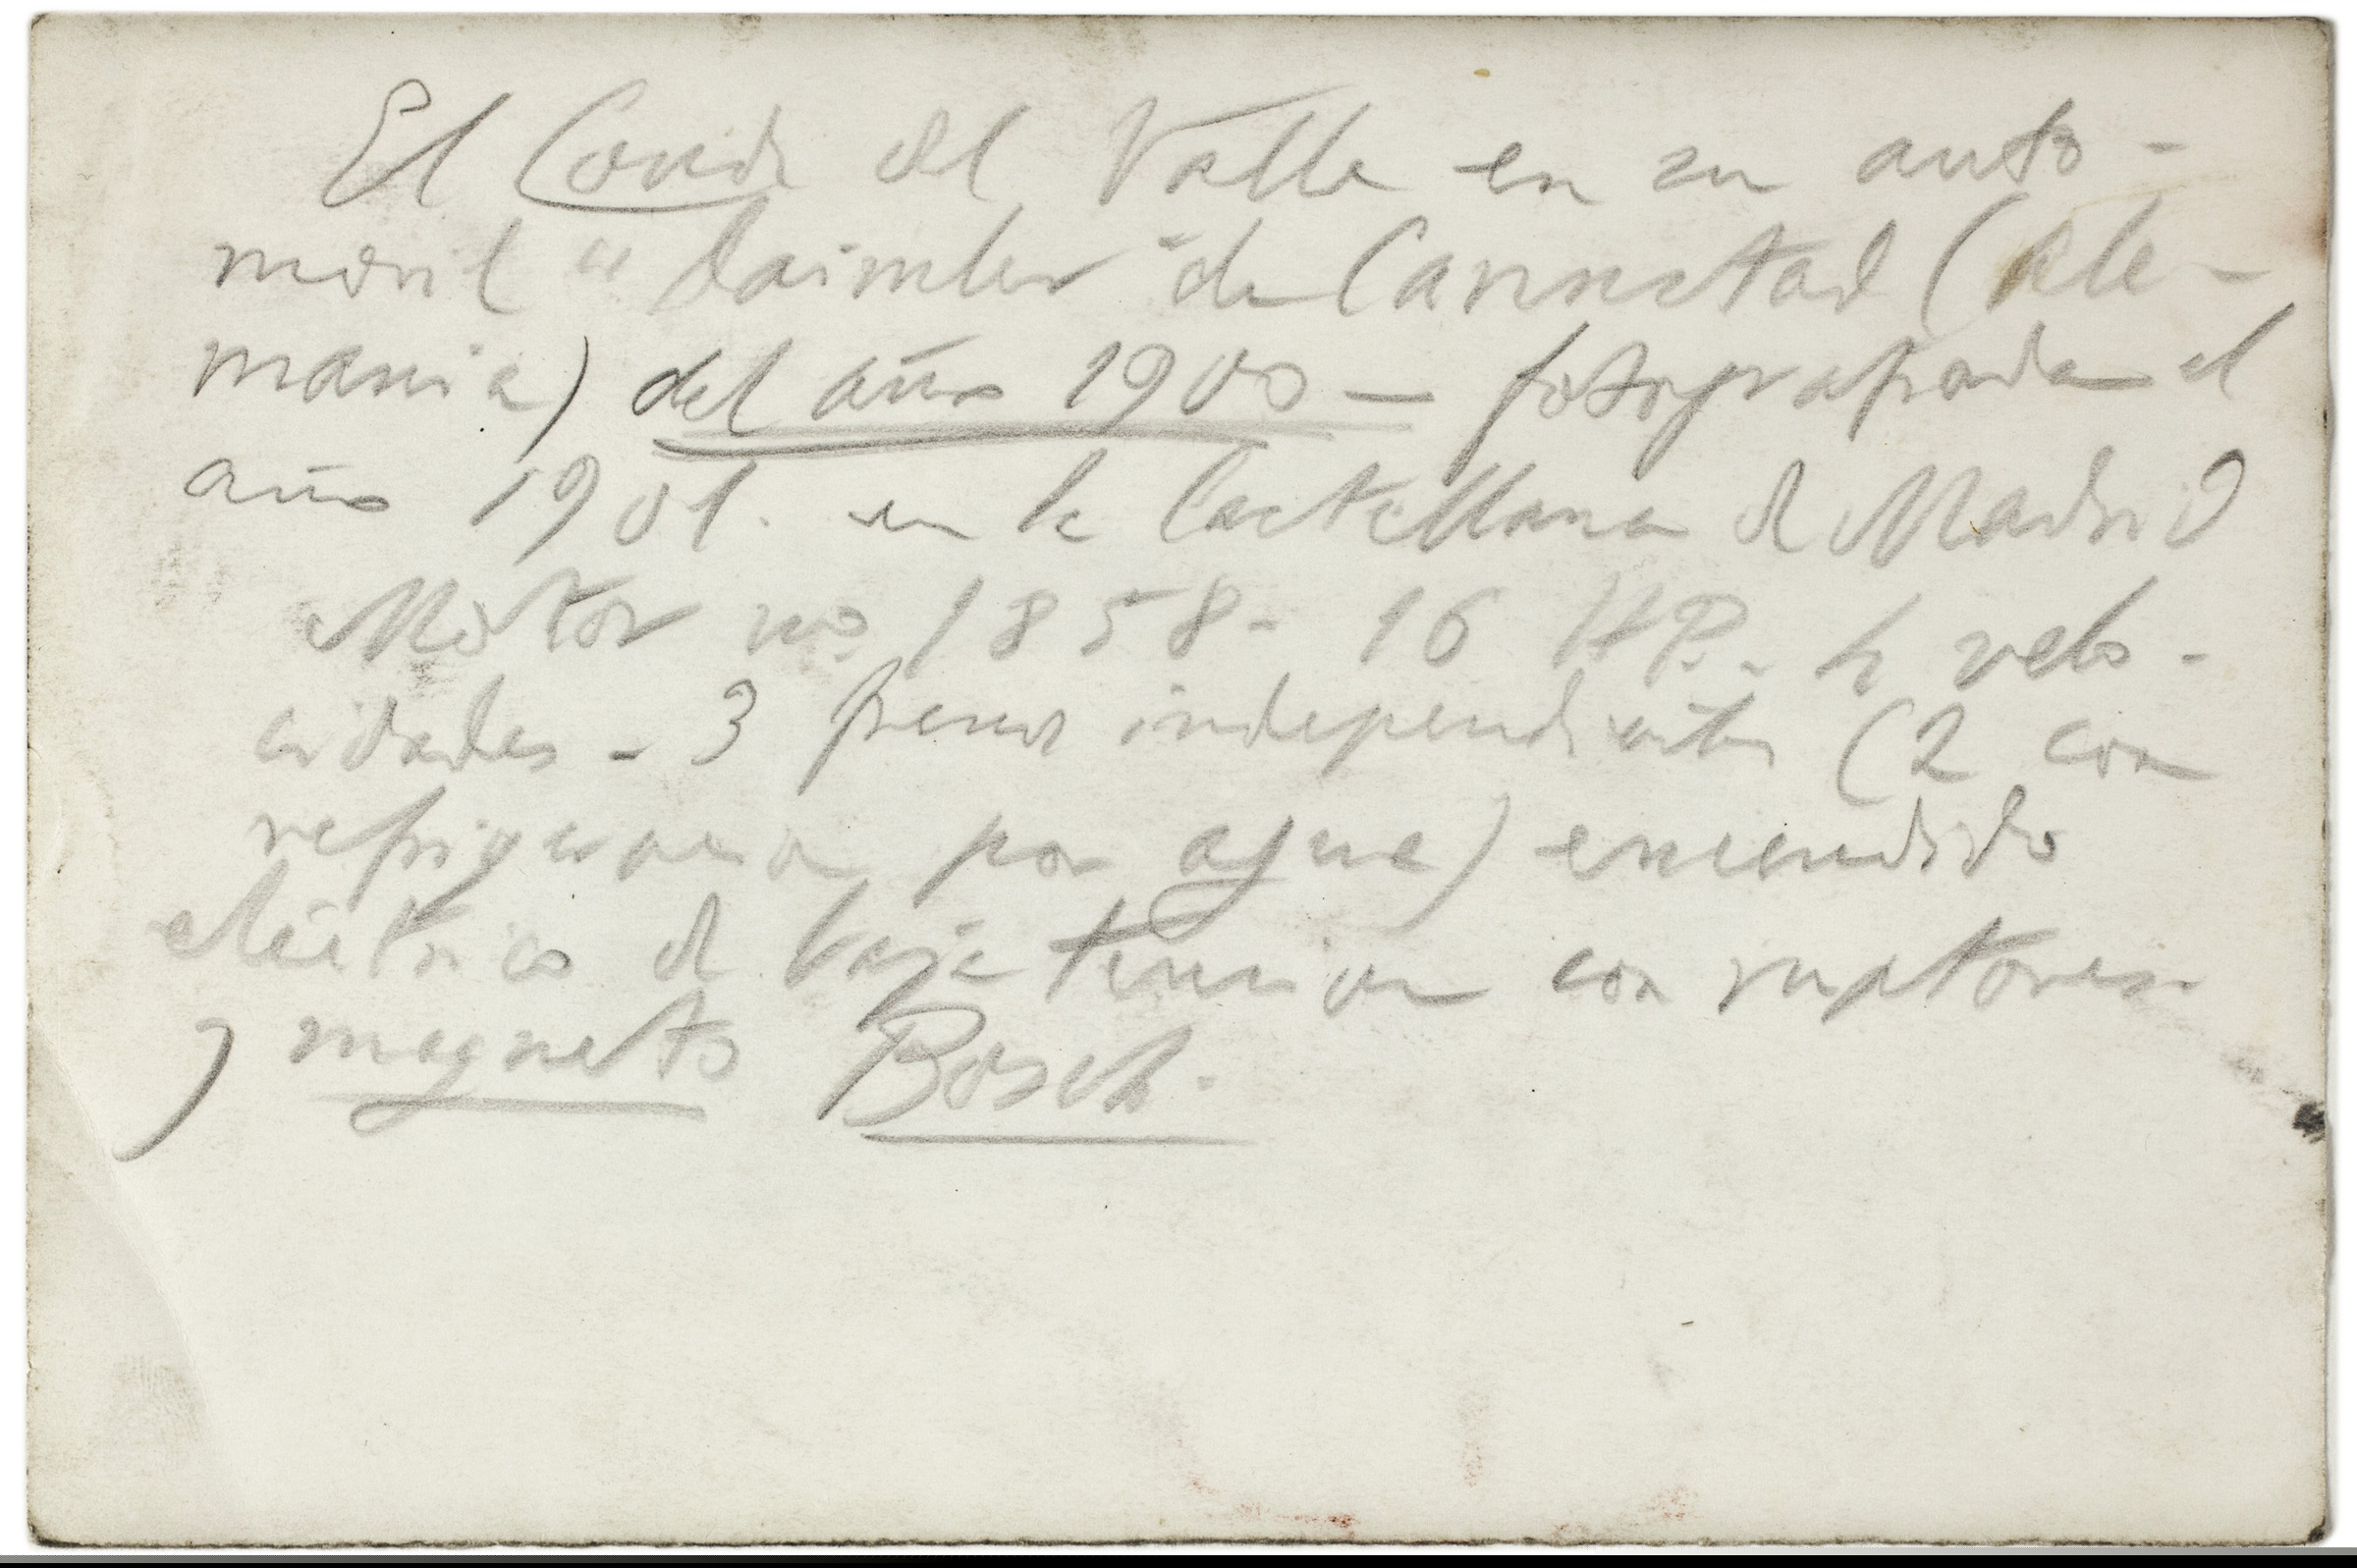 El Conde del Valle en su auto-
movil "Daimler" de Cannstad (Ale-
mania) del año 1900 — fotografiada el
año 1901. en la Castellana de Madrid
Motor no. 1858 - 16 HP. 4 velo-
cidades - 3 frenos independientes (2 con
refrigeracion por agua) encendido
eléctrico de baja tension con ruptores
y magneto Bosch.